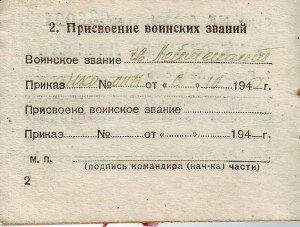 2. Присвоение воинских званий
Воинское звание
Приказ № от " " 10 194 г.
Присвоено воинское звание
Приказ № от " " 194 г.
м. п.
(подпись командира (нач-ка) части)
2